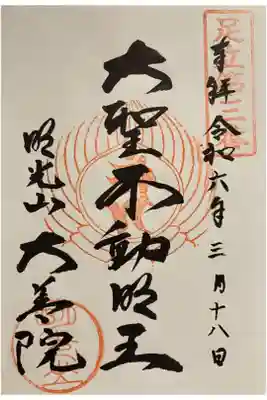 奉拝 令和六年三月十八日
大聖不動明王
明光山 大善院